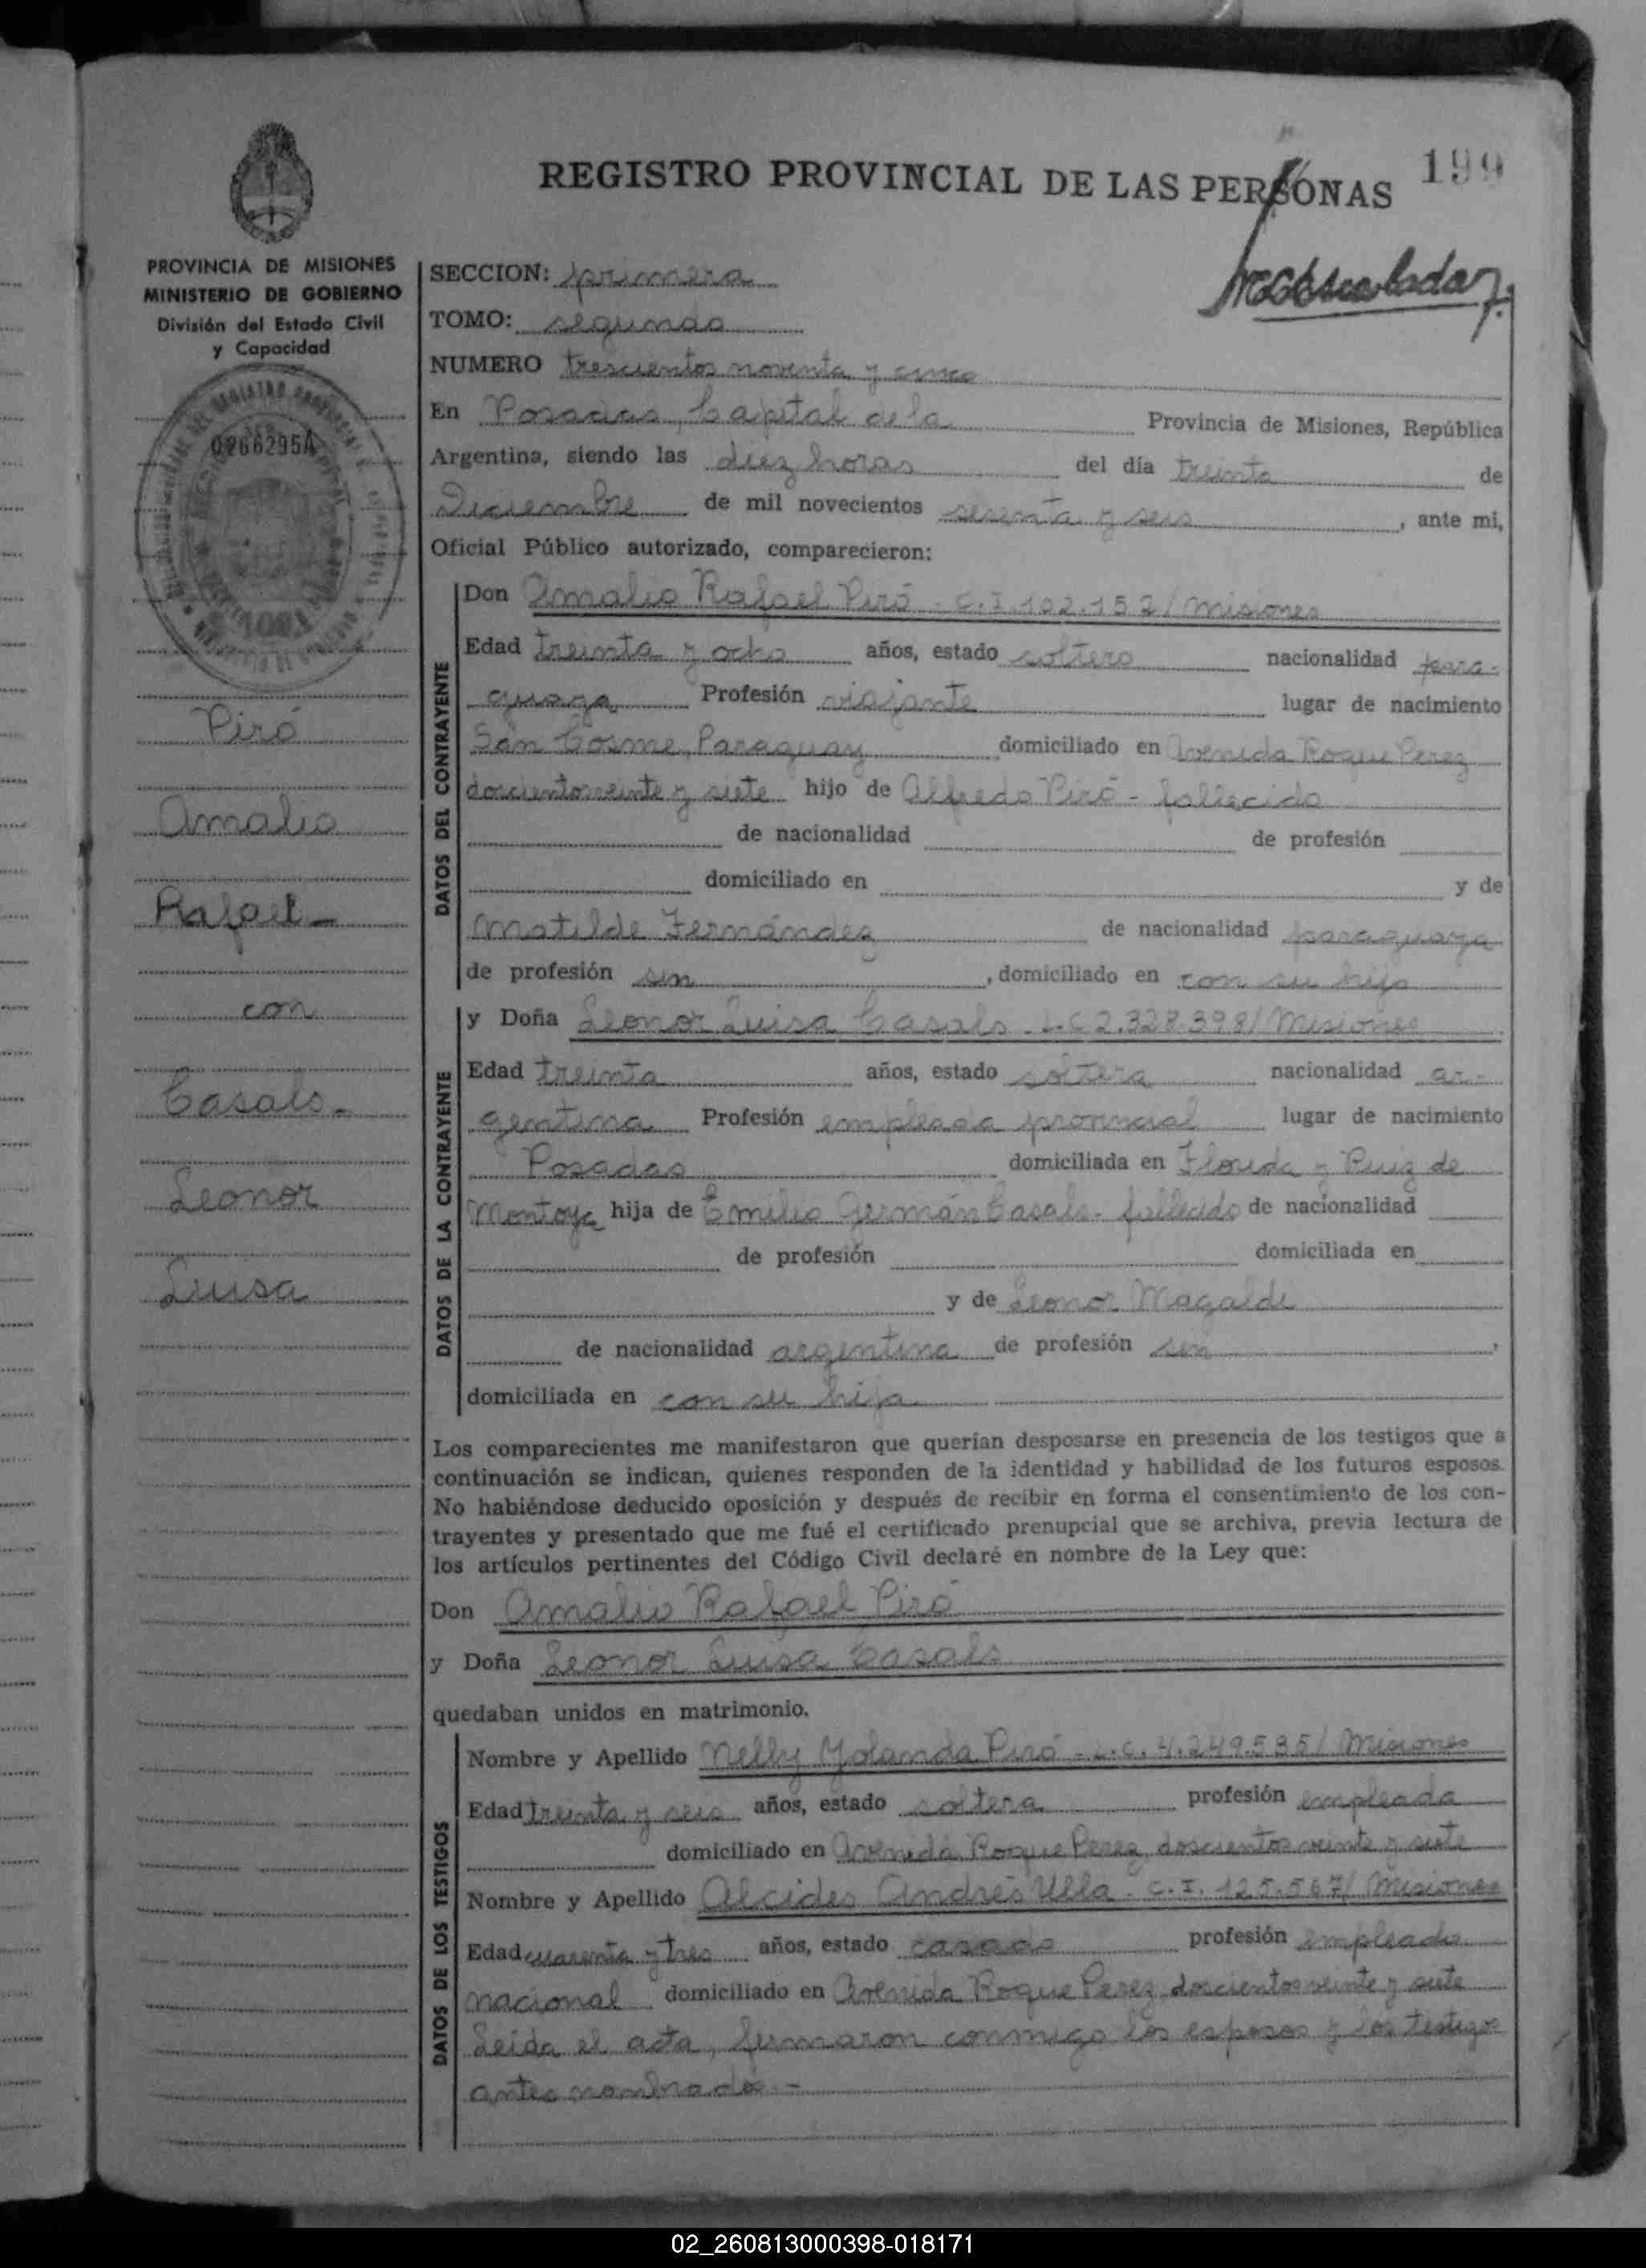 REGISTRO PROVINCIAL DE LAS PERSONAS
199
PROVINCIA DE MISIONES
MINISTERIO DE GOBIERNO
División del Estado Civil
y Capacidad
0266295A
Piró
Amalio
Rafael-
con
Casals-
Leonor
Luisa
SECCION: primera
TOMO: segundo
NUMERO trescientos noventa y cinco
En Posadas, Capital de la Provincia de Misiones, República
Argentina, siendo las diez horas del día treinta de
Diciembre de mil novecientos sesenta y seis, ante mi,
Oficial Público autorizado, comparecieron:
DATOS DEL CONTRAYENTE
Don Amalio Rafael Piró - C.I. 102.152/Misiones
Edad treinta y ocho años, estado soltero nacionalidad para-
guaya Profesión viajante lugar de nacimiento
San Cosme, Paraguay domiciliado en Avenida Roque Perez
doscientos veinte y siete hijo de Alfredo Piró - fallecido
de nacionalidad de profesión
domiciliado en y de
Matilde Fernández de nacionalidad paraguaya
de profesión sin, domiciliado en con su hijo
DATOS DE LA CONTRAYENTE
y Doña Leonor Luisa Casals L.C 2.328.398/Misiones
Edad treinta años, estado soltera nacionalidad ar-
gentina Profesión empleada provincial lugar de nacimiento
Posadas domiciliada en Florida y Ruiz de
Montoya hija de Emilio Germán Casals- fallecido de nacionalidad
de profesión domiciliada en
y de Leonor Magalde
de nacionalidad argentina de profesión sin,
domiciliada en con su hija
Los comparecientes me manifestaron que querían desposarse en presencia de los testigos que a
continuación se indican, quienes responden de la identidad y habilidad de los futuros esposos.
No habiéndose deducido oposición y después de recibir en forma el consentimiento de los con-
trayentes y presentado que me fué el certificado prenupcial que se archiva, previa lectura de
los artículos pertinentes del Código Civil declaré en nombre de la Ley que:
Don Amalio Rafael Piró
y Doña Leonor Luisa Casals
quedaban unidos en matrimonio.
DATOS DE LOS TESTIGOS
Nombre y Apellido Nelly Yolanda Piró - L.C. 4.249.535/Misiones
Edad treinta y seis años, estado soltera profesión empleada
domiciliado en Avenida Roque Perez doscientos veinte y siete
Nombre y Apellido Alcides Andrés Ulla - C.I. 125.567/Misiones
Edad cuarenta y tres años, estado casado profesión empleado
nacional domiciliado en Avenida Roque Perez doscientos veinte y siete
Leída el acta, firmaron conmigo los esposos y los testigos
antes nombrados.-
02_260813000398-018171